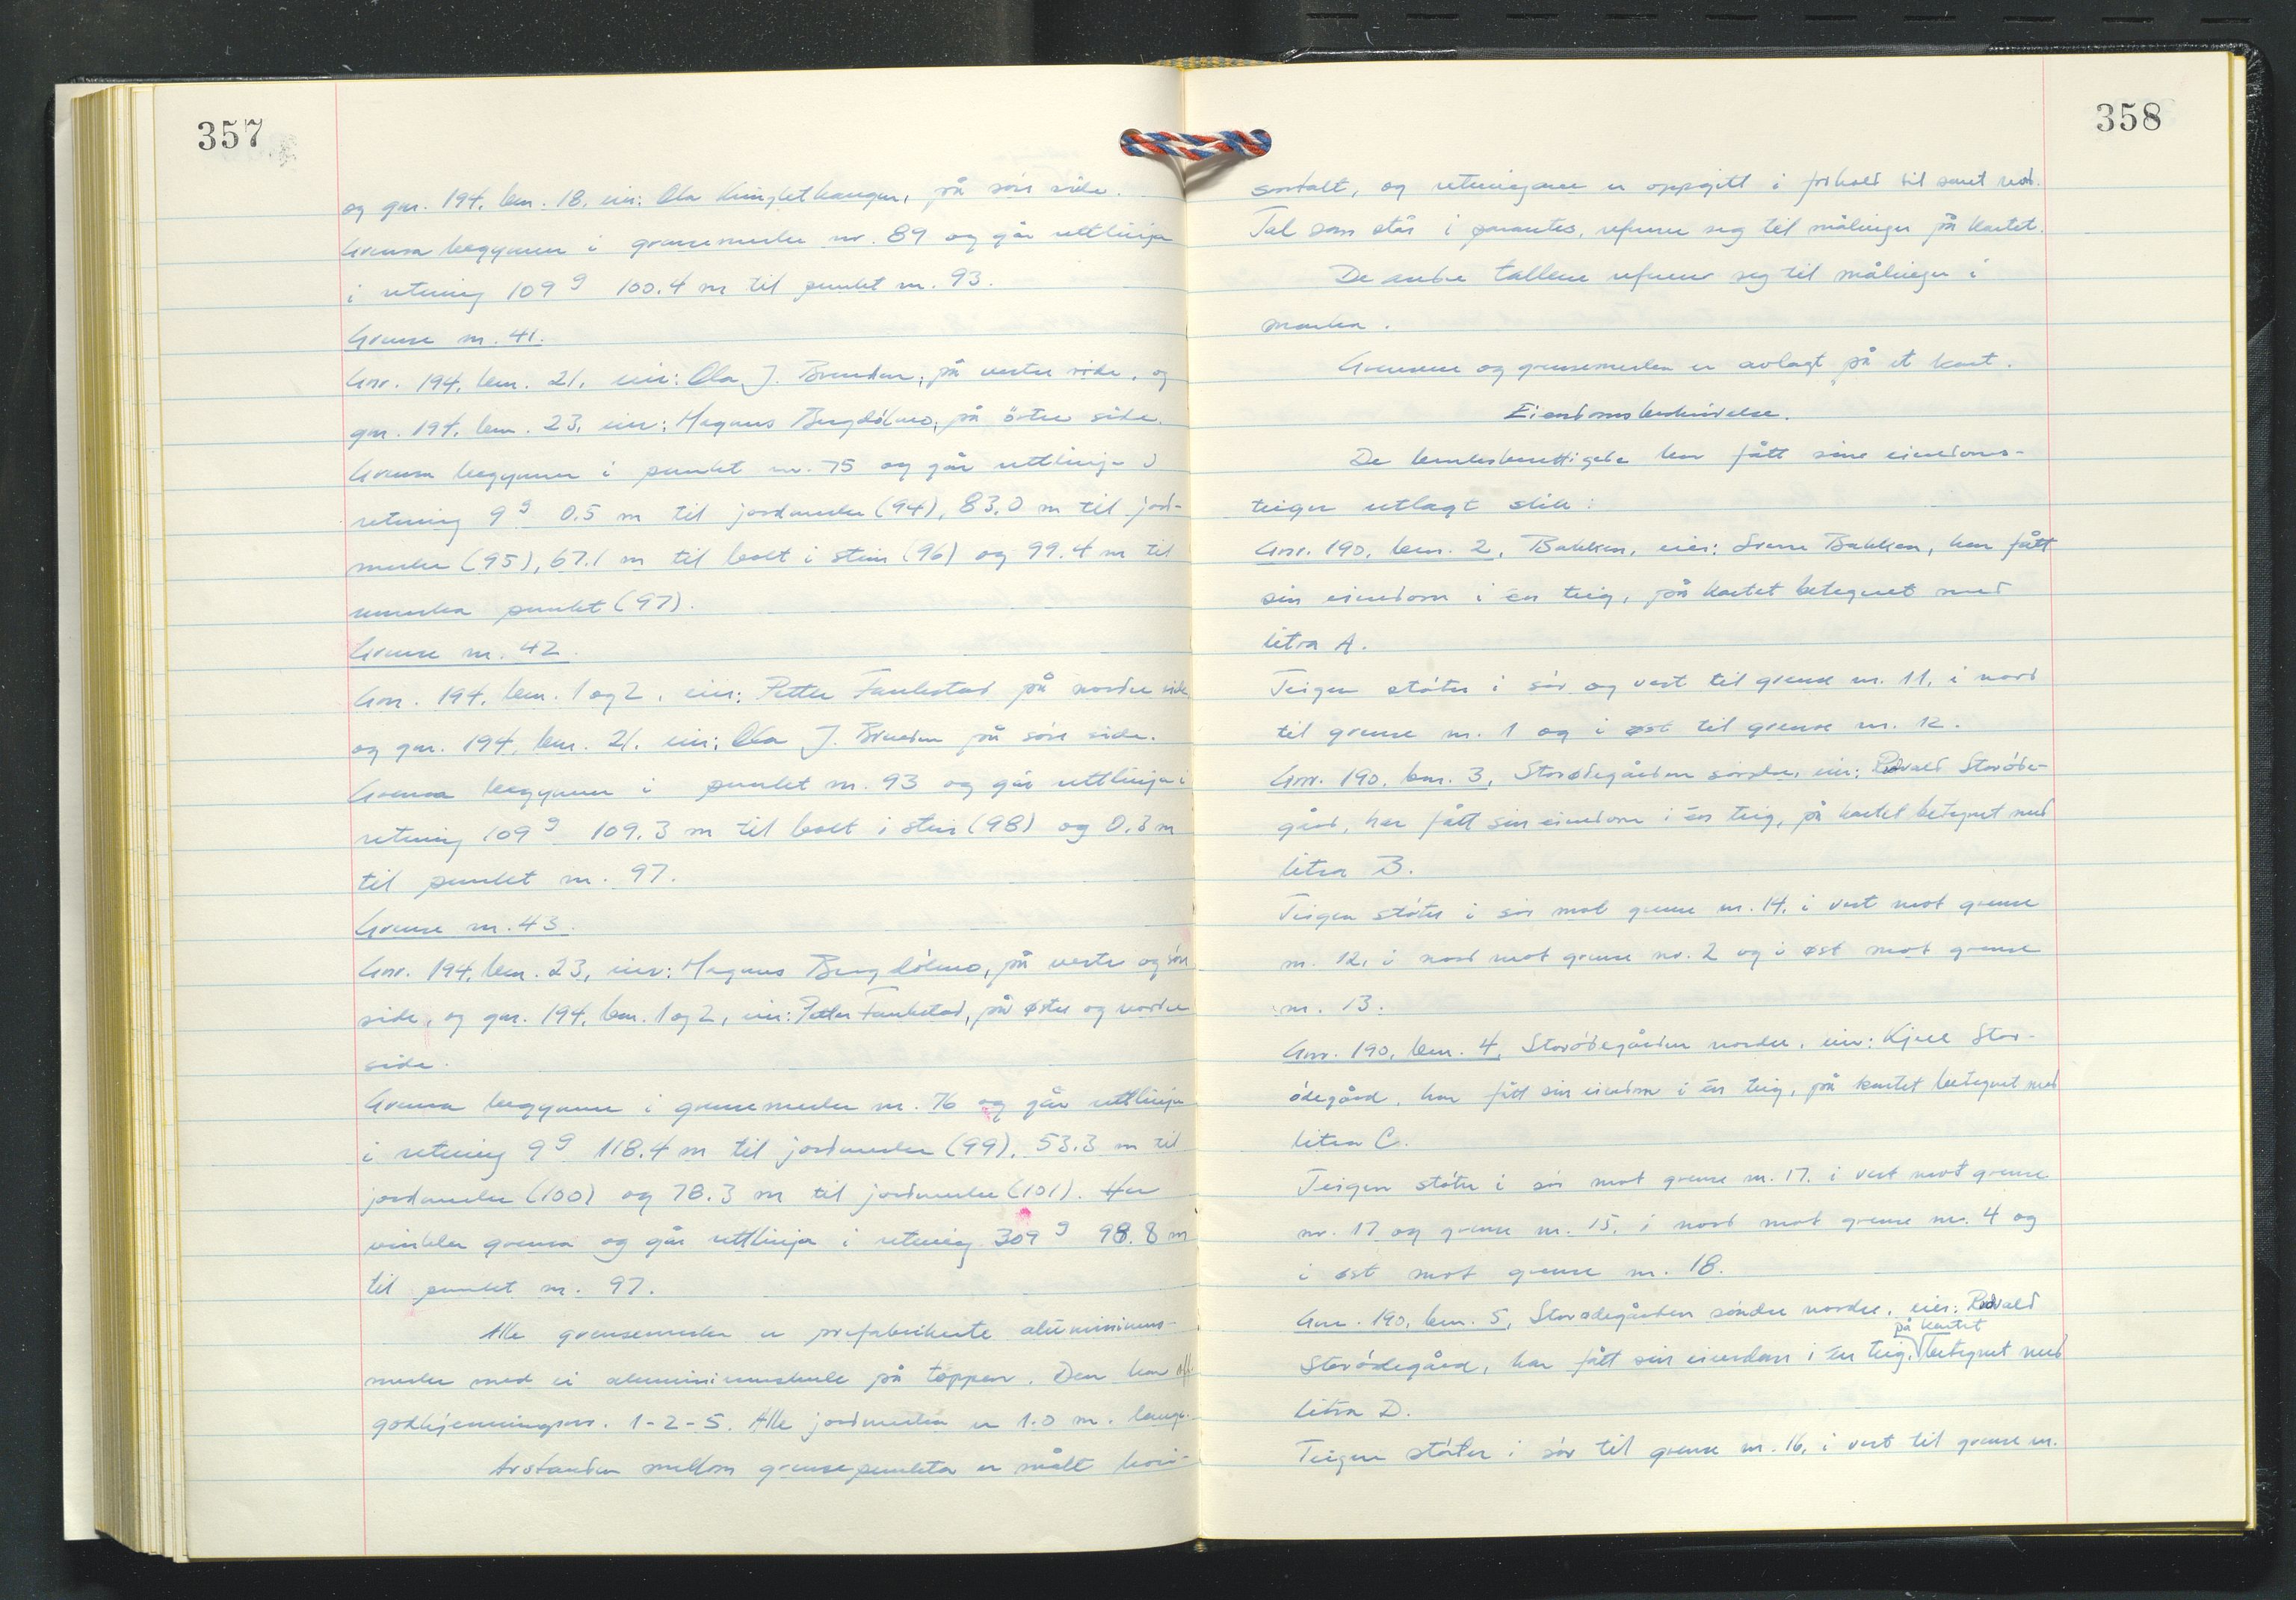 357
og gnr. 194, bnr. 18, eier: Ola på søre side.
Grensa begynner i grensemerke nr. 89 og går rettlinja
i retning 109 g 100.4 m til punkt nr. 93.
Grense nr. 41.
Gnr. 194, bnr. 21, eier: Ola J. Brenden, på vestre side, og
gnr. 194, bnr. 23, eier: Magnus Bergdølmo, på östre side.
Grensa begynner i punkt nr. 75 og går rettlinja i
retning 9 g 0.5 m til jordmerke (94), 83.0 m til jord-
merke (95), 67.1 m til bolt i stein (96) og 99.4 m til
umerka punkt (97).
Grense nr. 42.
Gnr. 194, bnr. 1 og 2, eier: Petter Fankstad på nordre side
og gnr. 194, bnr. 21, eier: Ola J. Brenden på søre side.
Grensa begynner i punkt nr. 93 og går rettlinja i
retning 109 g 109.3 m til bolt i stein (98) og 0.3 m
til punkt nr. 97.
Grense nr. 43.
Gnr. 194, bnr. 23, eier: Magnus Bergdølmo, på vestre og søre
side, og gnr. 194, bnr. 1 og 2, eier: Petter Fankstad, på østre og nordre
side.
Grensa begynner i grensemerke nr. 76 og går rettlinja
i retning 9 g 118.4 m til jordmerke (99), 53.3 m til
jordmerke (100) og 78.3 m til jordmerke (101). Her
vinkler grensa og går rettlinja i retning 309 g 98.8 m
til punkt nr. 97.
Alle grensemerker er prefabrikerte aluminiums-
merker med ei aluminiumskule på toppen. Den har
godkjenningsnr. 1-2-5. Alle jordmerker er 1.0 m. lange.
Avstanden mellom grensepunkta er målt hori-
358
sontalt, og retningane er oppgitt i forhold til sant nord.
Tal som står i parantes, refererer seg til målinger på kartet.
De andre tallene refererer seg til målinger i
marka.
Grensene og grensemerka er avlagt på et kart.
Eiendomsbeskrivelse.
De bruksberettigede har fått sine eiendoms-
teiger utlagt slik:
Gnr. 190, bnr. 2, Bakken, eier: Sverre Bakken, har fått
sin eiendom i én teig, på kartet betegnet med
litra A.
Teigen støter i sør og vest til grense nr. 11, i nord
til grense nr. 1 og i øst til grense nr. 12.
Gnr. 190, bnr. 3, Storødegården søndre, eier: Rodvald Storøde-
gård, har fått sin eiendom i én teig, på kartet betegnet med
litra B.
Teigen støter i sør mot grense nr. 14, i vest mot grense
nr. 12, i nord mot grense nr. 2 og i øst mot grense
nr. 13.
Gnr. 190, bnr. 4, Storødegården nordre, eier: Kjell Stor-
ødegård, har fått sin eiendom i én teig, på kartet betegnet med
litra C.
Teigen støter i sør mot grense nr. 17, i vest mot grense
nr. 17 og grense nr. 15, i nord mot grense nr. 4 og
i øst mot grense nr. 18.
Gnr. 190, bnr. 5, Storødegården søndre nordre, eier: Rodvald
på kartet
Storødegård, har fått sin eiendom i én teig, betegnet med
litra D.
Teigen støter i sør til grense nr. 16, i vest til grense nr.